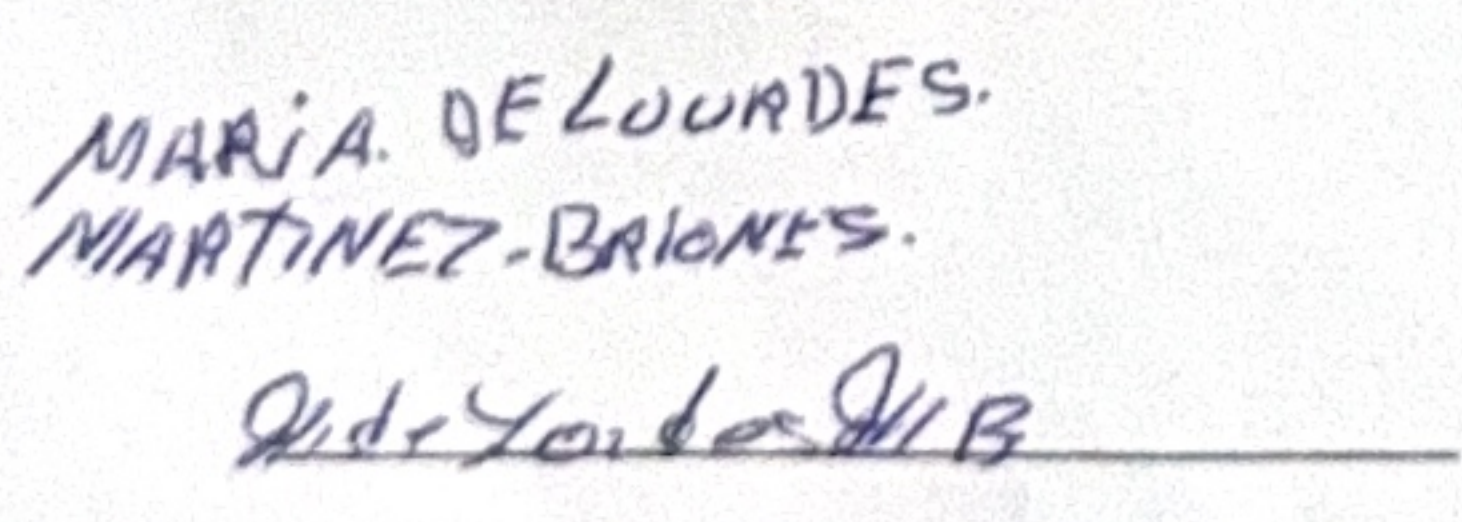 MARiA. DE LOURDES.
MARTINEZ-BRIONES.
M. de Lourdes M B